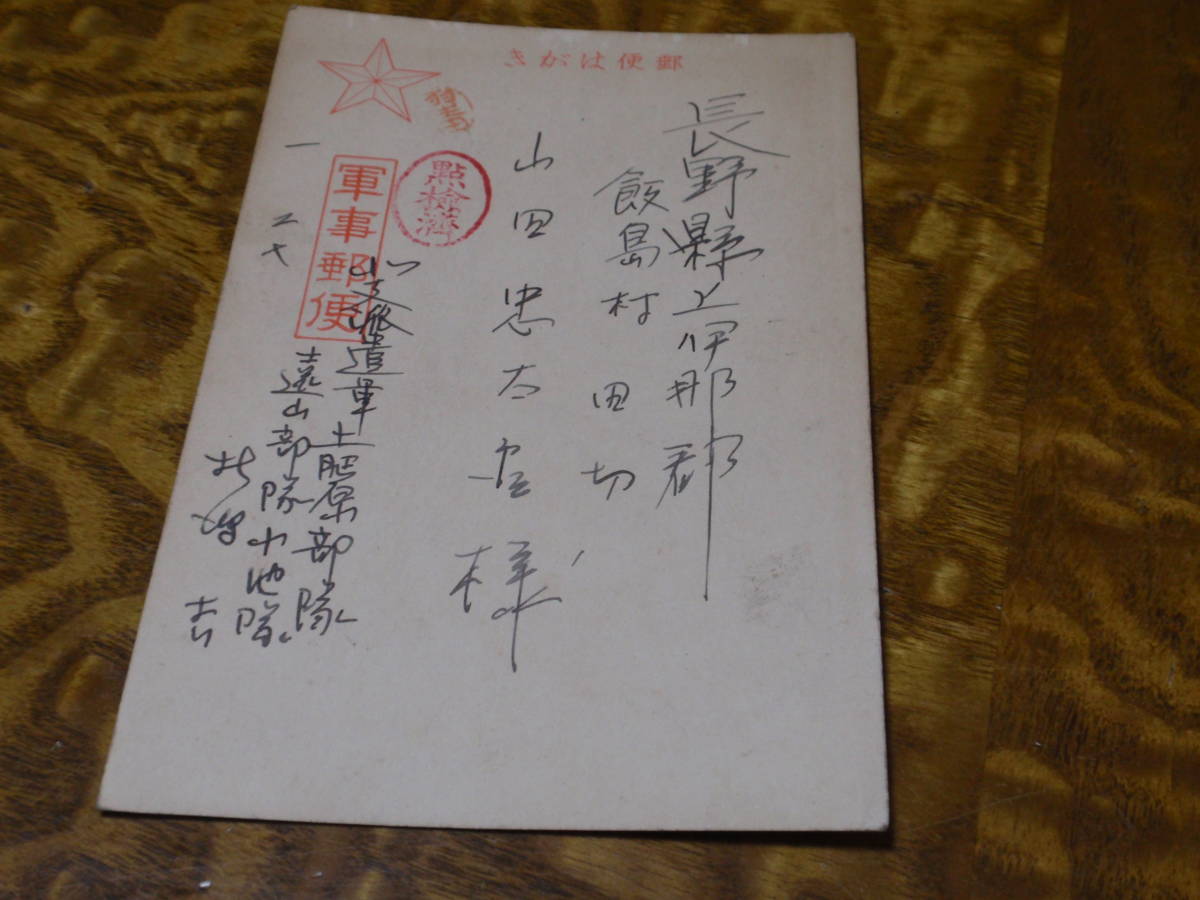 郵便はがき
長野縣上伊那郡
飯島村 田切
山田忠太郎様
點檢濟
軍事郵便
北支派遣軍土肥原部隊
遠山部隊小池隊
一 二七